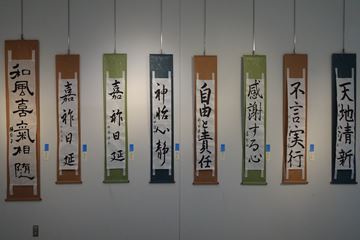 和風喜氣相随
嘉祚日延
嘉祚日延
神怡心静
自由と責任
感謝する心
不言実行
天地清新